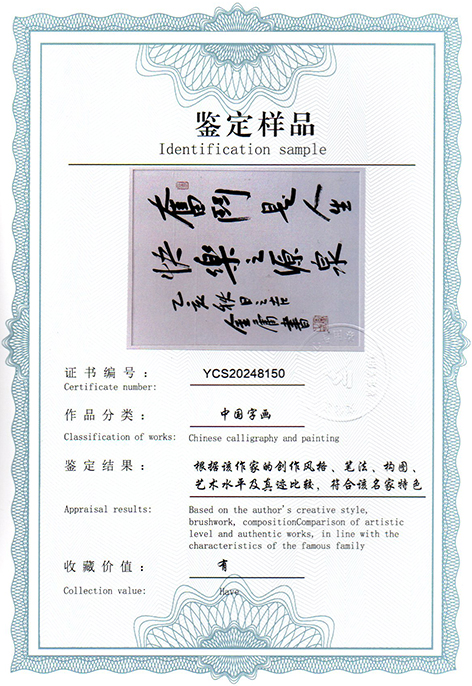 鉴定样品
Identification sample
奮鬥是人生
快樂之源泉
乙亥秋日
金庸書
证书编号：
YCS20248150
Certificate number:
作品分类：
中国字画
Classification of works:
Chinese calligraphy and painting
鉴定结果：
根据该作家的创作风格、笔法、构图、
艺术水平及真迹比较，符合该名家特色
Appraisal results:
Based on the author's creative style,
brushwork, compositionComparison of artistic
level and authentic works, in line with the
characteristics of the famous family
收藏价值：
有
Collection value:
Have